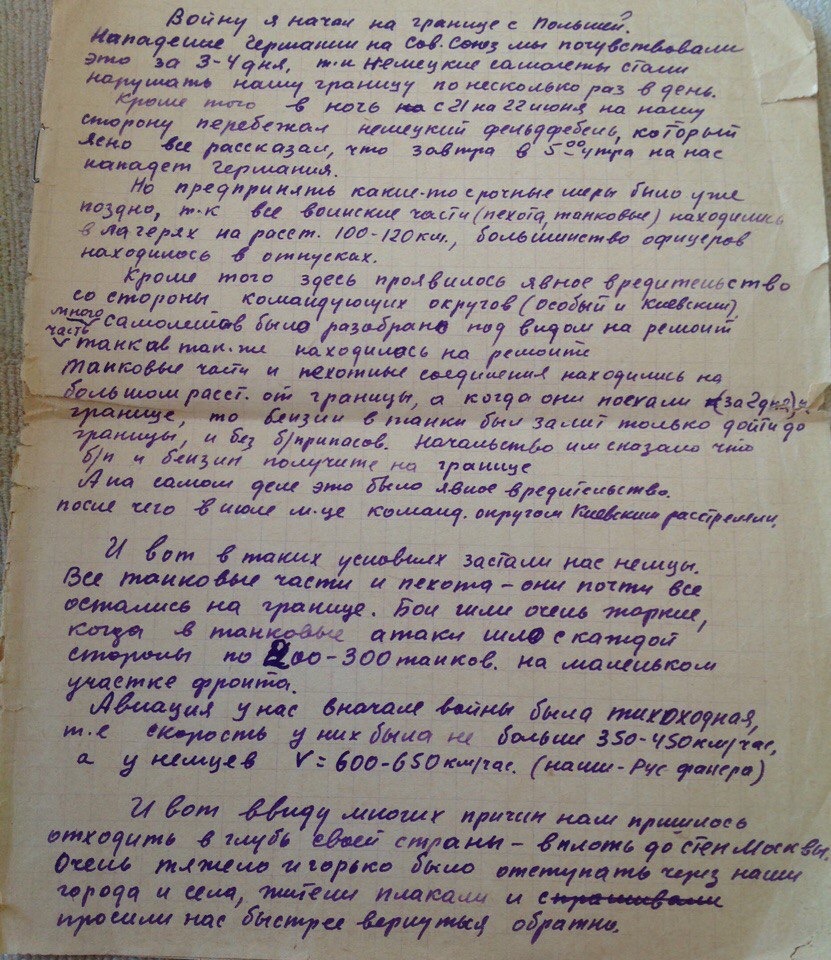 Войну я начал на границе с Польшей.
Нападение Германии на Сов. Союз мы почувствовали
это за 3-4 дня, т.к немецкие самолеты стали
нарушать нашу границу по несколько раз в день.
Кроме того в ночь с 21 на 22 июня на нашу
сторону перебежал немецкий фельдфебель, который
ясно все рассказал, что завтра в 5⁰⁰ утра на нас
нападет Германия.
Но предпринять какие-то срочные меры было уже
поздно, т.к все воинские части (пехота, танковые) находились
в лагерях на расст. 100-120 км., большинство офицеров
находилось в отпусках.
Кроме того здесь проявилось явное вредительство
со стороны командующих округов (особый и Киевский),
много самолетов было разобрано под видом на ремонт
часть танков так-же находилось на ремонте
Танковые части и пехотные соединения находились на
большом расст. от границы, а когда они поехали (за 2 дня) к
границе, то бензин в танки был залит только дойти до
границы, и без б/припасов. Начальство им сказало что
б/п и бензин получите на границе
А на самом деле это было явное вредительство.
после чего в июле м-це команд. округом Киевским расстреляли.
И вот в таких условиях застали нас немцы.
Все танковые части и пехота - они почти все
остались на границе. Бои шли очень жаркие,
когда в танковые атаки шло с каждой
стороны по 200-300 танков. на маленьком
участке фронта.
Авиация у нас вначале войны была тихоходная,
т.е скорость у них была не больше 350-450 км/час,
а у немцев V = 600-650 км/час. (наши - Рус фанера)
И вот ввиду многих причин нам пришлось
отходить в глубь своей страны - вплоть до стен Москвы.
Очень тяжело и горько было отступать через наши
города и села, жители плакали и спрашивали
просили нас быстрее вернуться обратно.